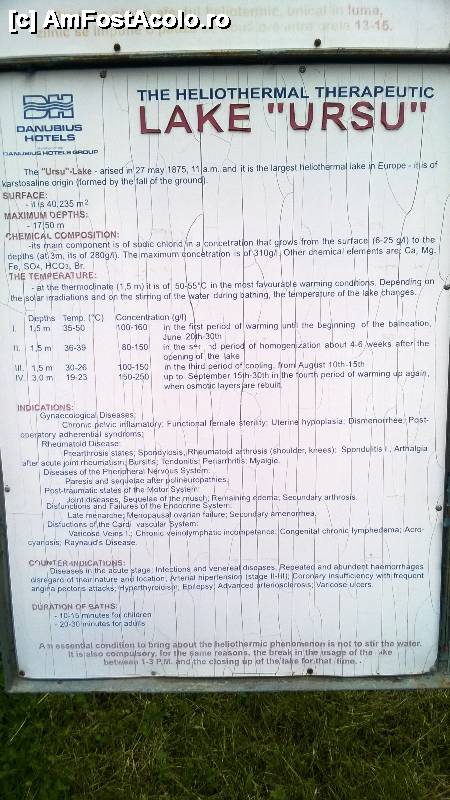 [c] AmFostAcolo.ro
DH
DANUBIUS
HOTELS
DANUBIUS HOTELS GROUP
THE HELIOTHERMAL THERAPEUTIC
LAKE "URSU"
The "Ursu"-Lake - arised in 27 may 1875, 11 a.m. and it is the largest heliothermal lake in Europe - it is of
karstosaline origin (formed by the fall of the ground).
SURFACE:
- it is 40,235 m²
MAXIMUM DEPTHS:
- 17,50 m
CHEMICAL COMPOSITION:
-its main component is of sodic chlorid in a concetration that grows from the surface (6-25 g/l) to the
depths (at 3m, its of 280g/l). The maximum concentration is of 310g/l. Other chemical elements are: Ca, Mg,
Fe, SO4, HCO3, Br.
THE TEMPERATURE:
- at the thermoclinate (1,5 m) it is of 50-55°C in the most favourable warming conditions. Depending on
the solar irradiations and on the stirring of the water during bathing, the temperature of the lake changes.
Depths Temp. (°C) Concentration (g/l)
I. 1,5 m 35-50 100-160 in the first period of warming until the beginning of the balneation,
June 20th-30th
II. 1,5 m 36-39 80-150 in the period of homogenization about 4-6 weeks after the
opening of the lake
III. 1,5 m 30-26 100-150 in the third period of cooling, from August 10th-15th
IV. 3,0 m 19-23 150-250 up to September 15th-30th in the fourth period of warming up again,
when osmotic layers are rebuilt.
INDICATIONS:
Gynaecological Diseases:
Chronic pelvic inflamatory; Functional female sterility; Uterine hypoplasia; Dismenorrhee; Post-
operatory adherential syndroms;
Rheumatoid Disease:
Prearthrosis states; Spondylosis, Rheumatoid arthrosis (shoulder, knees); Spondulitis I., Arthalgia
after acute joint rheumatism; Bursitis; Tendonitis; Periarthritis; Myalgie.
Diseases of the Pheripheral Nervous System:
Paresis and sequelae after polineuropathies,
Post-traumatic states of the Motor System:
Joint diseases, Sequelae of the musch; Remaining edema; Secundary arthrosis.
Disfunctions and Failures of the Endocrine System:
Late menarche; Menopausal ovarian failure; Secondary amenorrhea,
Disfuctions of the Cardi vascular System:
Varicose Veins I.; Chronic veinolymphatic incompetence; Congenital chronic lymphedema; Acro-
cyanosis; Raynaud's Disease.
COUNTER-INDICATIONS:
Diseases in the acute stage; Infections and venereal diseases, Repeated and abundent haemorrhages
disregard of their nature and location; Arterial hipertension (stage II-III); Coronary insufficiency with frequent
angina pectoris attacks; Hyperthyroidism; Epilepsy; Advanced arteriosclerosis; Varicose ulcers.
DURATION OF BATHS:
- 10-15 minutes for children
- 20-30 minutes for adults
An essential condition to bring about the heliothermic phenomenon is not to stir the water.
It is also compulsory, for the same reasons, the break in the usage of the lake
between 1-3 P.M. and the closing up of the lake for that time.